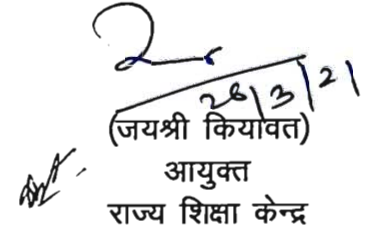 26/3/21
(जयश्री कियावत)
आयुक्त
राज्य शिक्षा केन्द्र